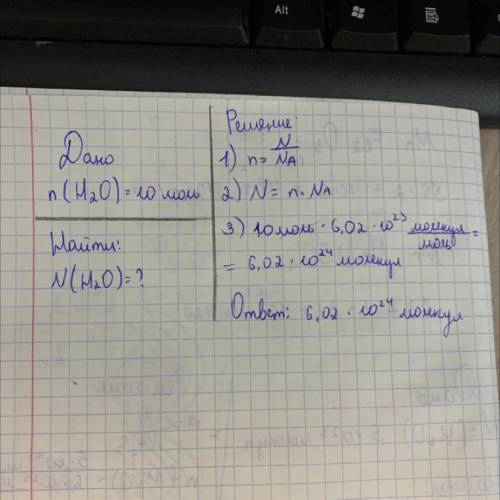 Alt
Дано
n(H₂O)=10 моль
Найти:
N(H₂O)=?
Решение:
1) n= N/NA
2) N= n·NA
3) 10 моль · 6,02 · 10²³ молекул/моль =
= 6,02 · 10²⁴ молекул
Ответ: 6,02 · 10²⁴ молекул